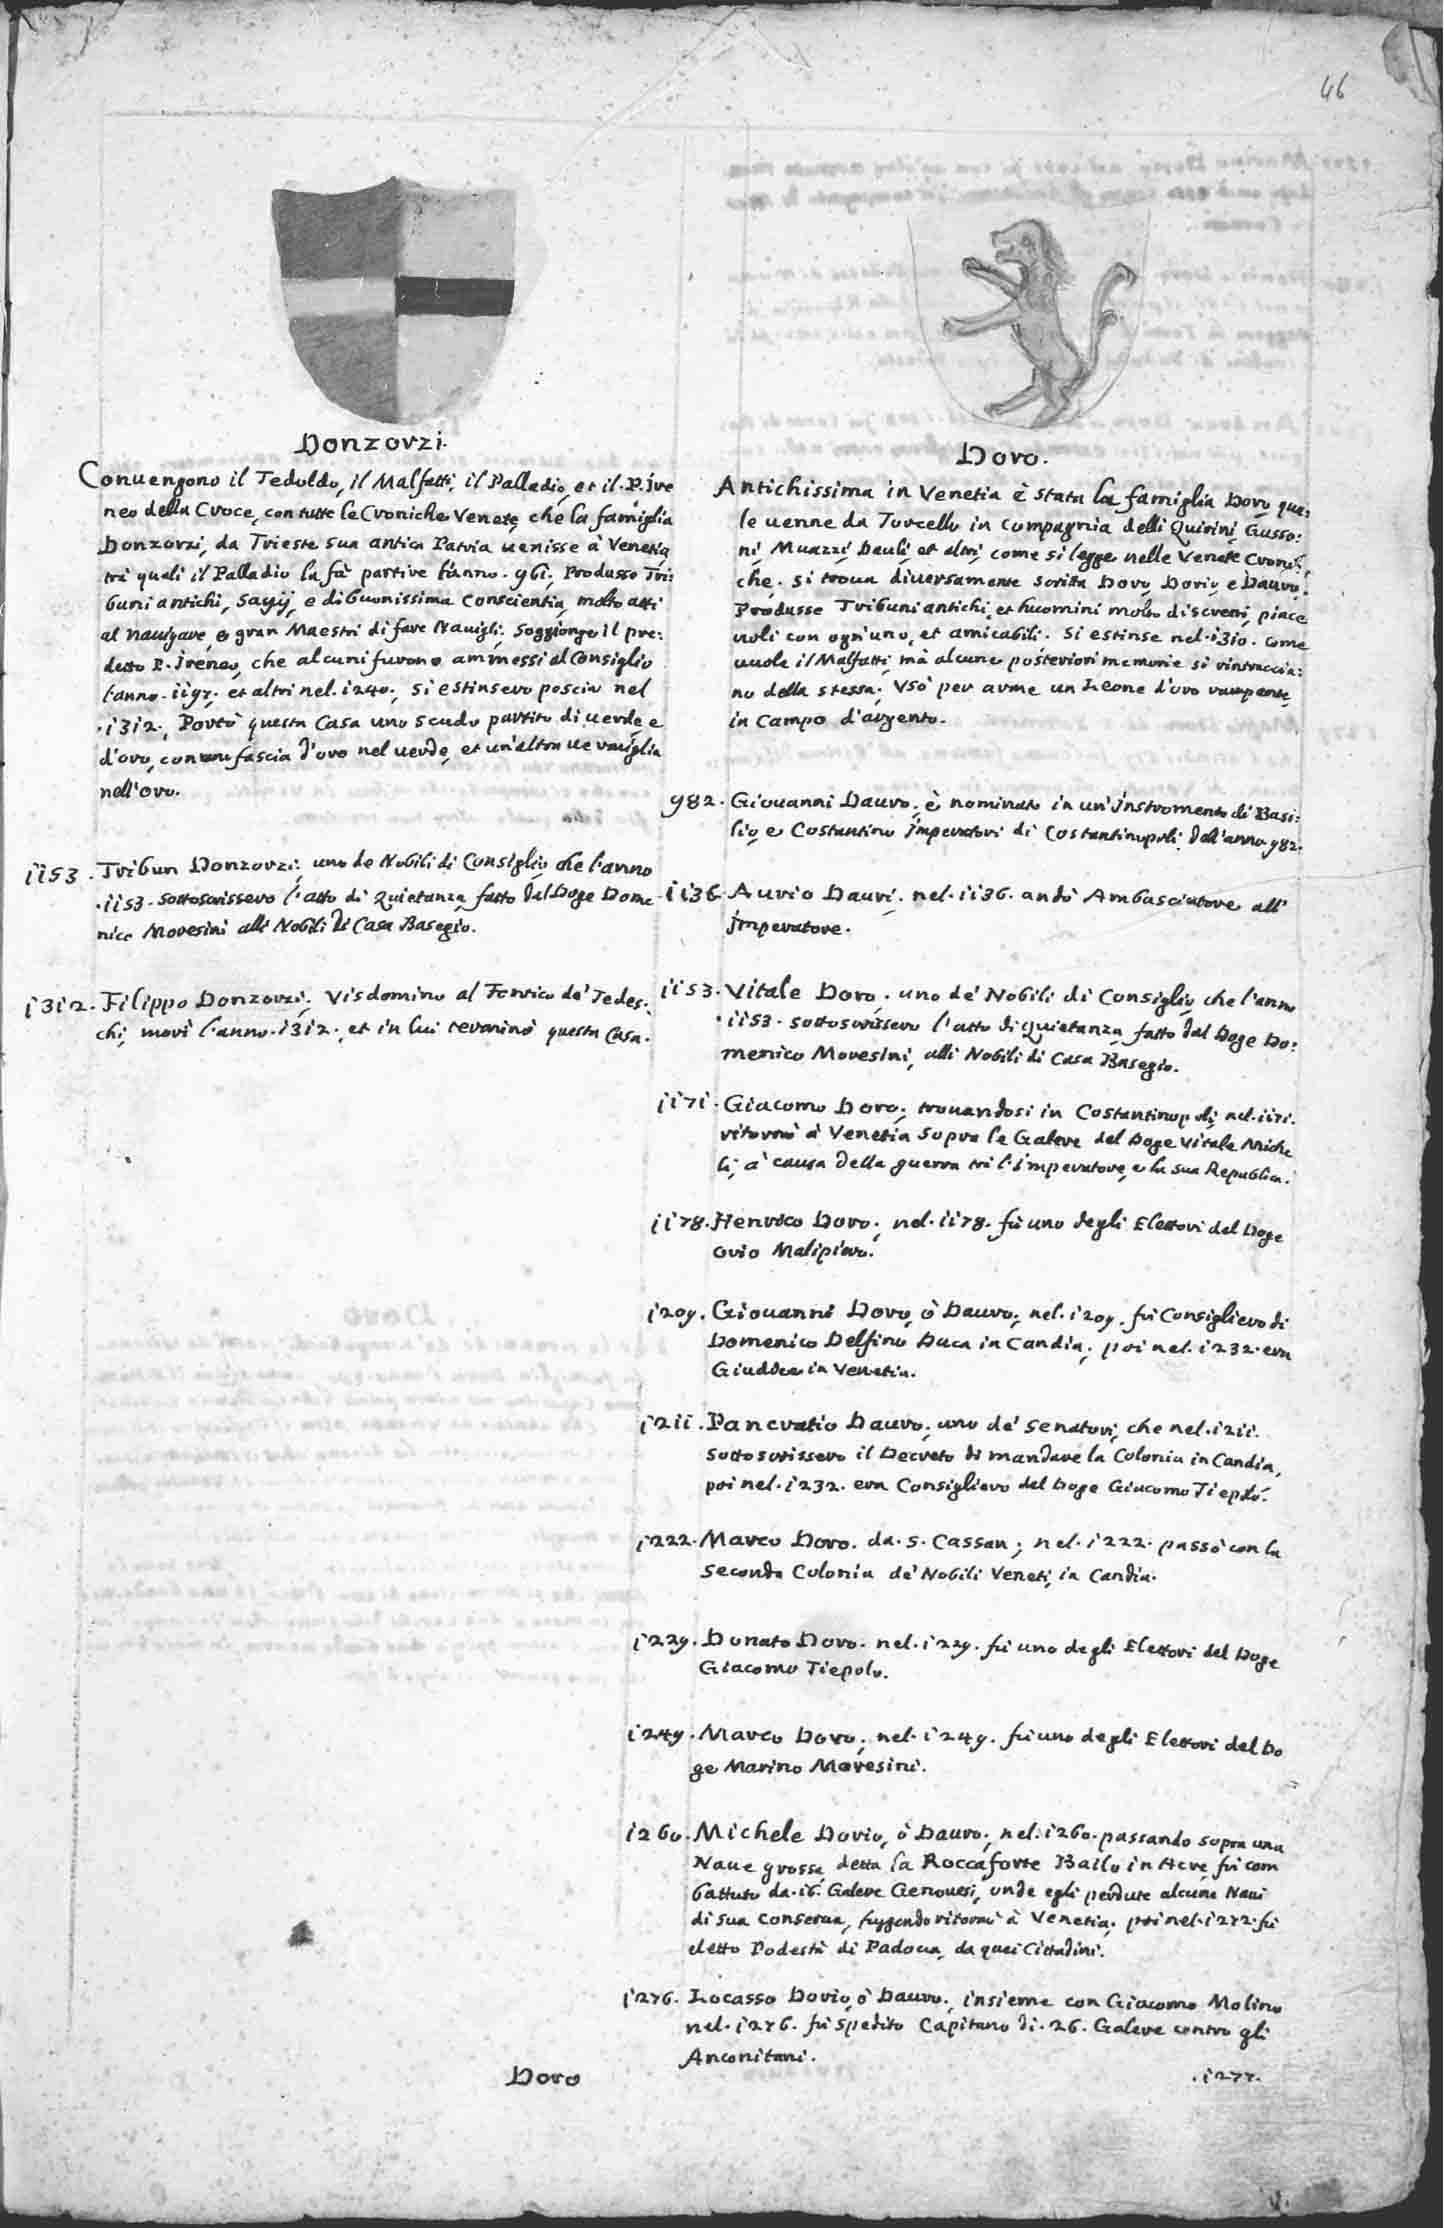 46
Donzorzi.
Conuengono il Tedoldo, il Malfatti, il Palladio, et il P. Ire
neo della Croce, con tutte le Croniche Venete, che la famiglia
Donzorzi, da Trieste sua antica Patria uenisse à Venetia,
trà quali il Palladio la fà partire l'anno. 961. Produsse Tri:
buni antichi, Sauij, e di buonissima conscientia, molto atti
al nauigare, e gran Maestri di fare Nauigli. Soggionge il pre:
detto P. Ireneo, che alcuni furono ammessi al Consiglio
l'anno. 1197. et altri nel. 1240. si estinsero poscia nel
.1312. Portò questa Casa uno scudo partito di uerde, e
d'oro, con una fascia d'oro nel uerde, et un'altra uermiglia
nell'oro.
1153. Tribun Donzorzi, uno de Nobili di Consiglio che l'anno
.1153. sottoscrissero l'atto di Quietanza, fatto dal Doge Dome
nico Moresini alli Nobili di Casa Basegio.
1312. Filippo Donzorzi, Visdomino al Fontico de' Tedes:
chi, morì l'anno. 1312. et in lui terminò questa Casa.
Doro
Doro.
Antichissima in Venetia è stata la famiglia Doro, qua:
le uenne da Torcello in compagnia delli Quirini, Gusso:
ni, Muazzi, Dauli, et altri, come si legge nelle Venete Croni:
che. si troua diuersamente scritta Doro, Dorio, e Dauro.
Produsse Tribuni antichi, et huomini molto discreti, piace
uoli con ogn'uno, et amicabili. Si estinse nel. 1310. come
uuole il Malfatti, mà alcune posteriori memorie si rintraccia:
no della stessa. Vsò per arme un Leone d'oro rampante,
in Campo d'argento.
982. Giouanni Dauro, è nominato in un'Instromento di Basi:
lio, e Costantino Imperatori di Costantinopoli, dell'anno 982.
1136. Aurio Dauri, nel. 1136. andò Ambasciatore all'
Imperatore.
1153. Vitale Doro. uno de' Nobili di Consiglio che l'anno
.1153. sottoscrissero l'atto di Quietanza fatto dal Doge Do:
menico Moresini, alli Nobili di Casa Basegio.
1171. Giacomo Doro, trouandosi in Costantinopoli, nel. 1171.
ritornò à Venetia sopra le Galere del Doge Vitale Miche
li, à causa della guerra trà l'Imperatore, e la sua Republica.
1178. Henrico Doro, nel. 1178. fù uno degli Elettori del Doge
Orio Malipiero.
1209. Giouanni Doro, ò Dauro, nel. 1209. fù Consigliero di
Domenico Delfino Duca in Candia, poi nel. 1232. era
Giudice in Venetia.
1211. Pancratio Dauro, uno de' Senatori, che nel. 1211.
sottoscrissero il Decreto di mandare la Colonia in Candia,
poi nel. 1232. era Consigliero del Doge Giacomo Tiepolo.
1222. Marco Doro. da. S. Cassan, nel. 1222. passò con la
seconda Colonia de' Nobili Veneti, in Candia.
1229. Donato Doro. nel. 1229. fù uno degli Elettori del Doge
Giacomo Tiepolo.
1249. Marco Doro, nel. 1249. fù uno degli Elettori del Do
ge Marino Moresini.
1260. Michele Dorio, ò Dauro, nel. 1260. passando sopra una
Naue grossa, detta la Roccaforte Bailo in Acre, fù com
battuto da. 16. Galere Genouesi, onde egli perdute alcune Naui
di sua conserua, fuggendo ritornò à Venetia, poi nel. 1272. fù
eletto Podestà di Padoua, da quei Cittadini.
1276. Locasso Dorio, ò Dauro, insieme con Giacomo Molino
nel. 1276. fù spedito Capitano di. 26. Galere contro gli
Anconitani.
.1277.